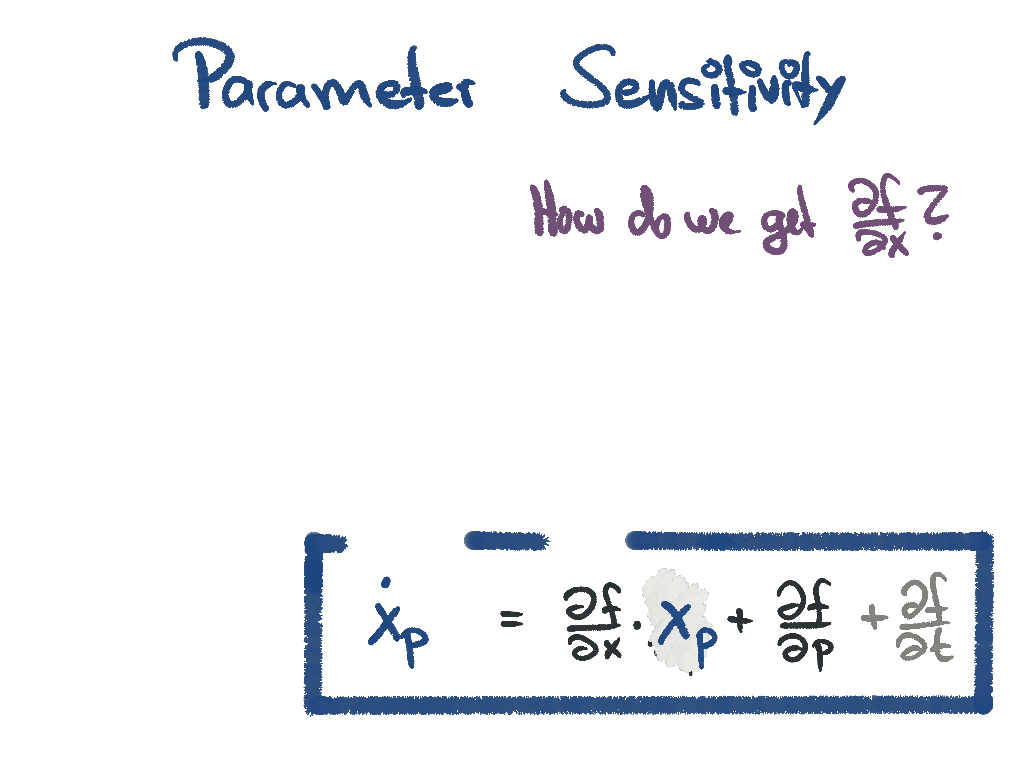 Parameter Sensitivity
How do we get ∂f/∂x?
ẋₚ = ∂f/∂x · xₚ + ∂f/∂p + ∂f/∂t